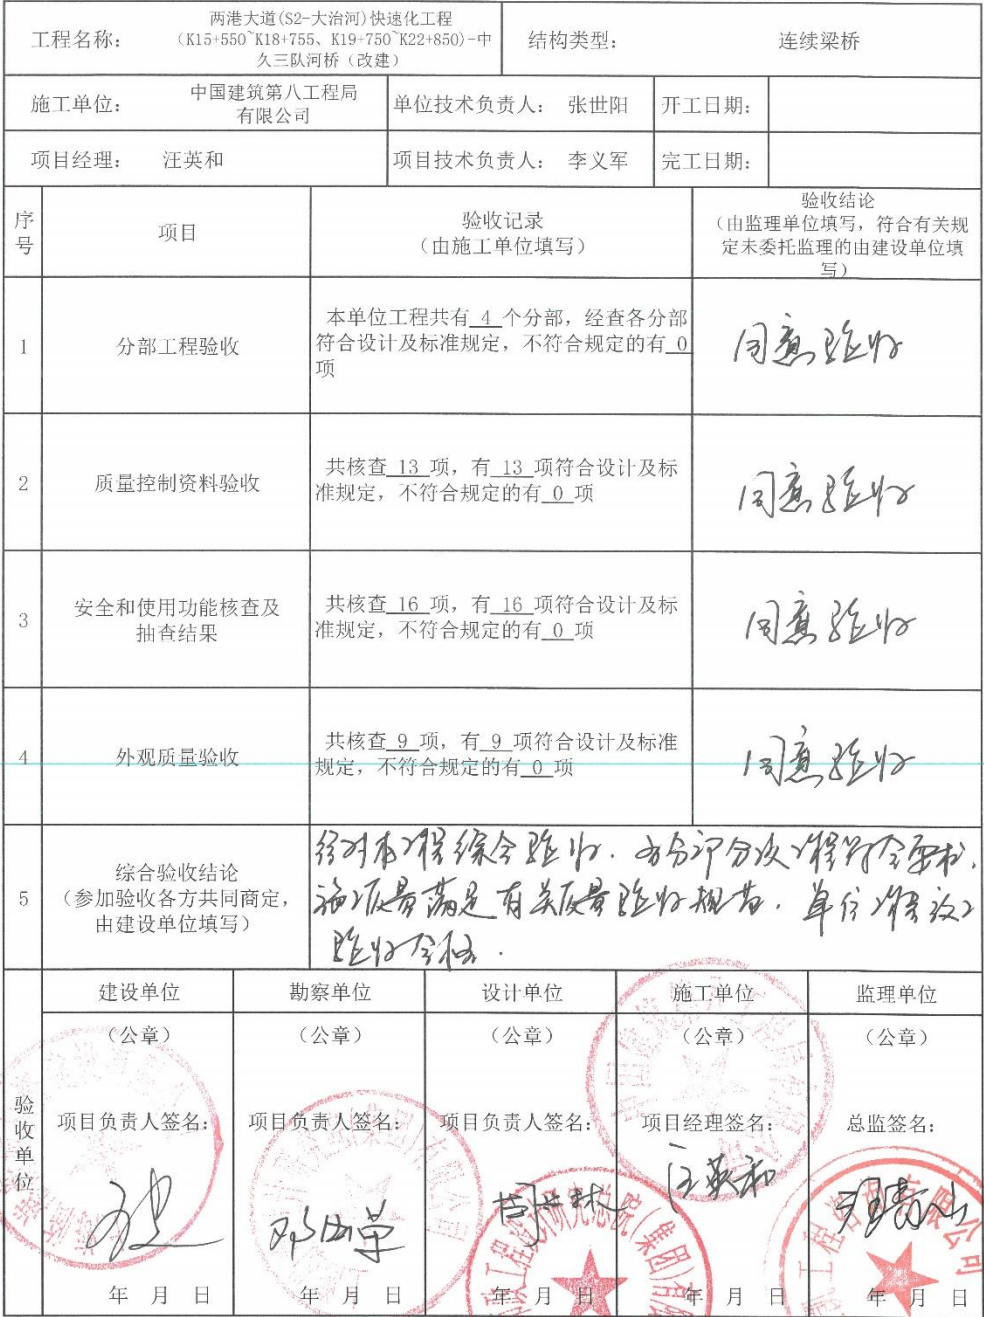 两港大道(S2-大治河)快速化工程
工程名称：
(K15+550~K18+755、K19+750~K22+850)-中
久三队河桥（改建）
结构类型：
连续梁桥
施工单位：
中国建筑第八工程局
有限公司
单位技术负责人：
张世阳
开工日期：
项目经理：
汪英和
项目技术负责人：
李义军
完工日期：
序
号
项目
验收记录
（由施工单位填写）
验收结论
（由监理单位填写，符合有关规
定未委托监理的由建设单位填
写）
1
分部工程验收
本单位工程共有 4 个分部，经查各分部
符合设计及标准规定，不符合规定的有 0
项
同意验收
2
质量控制资料验收
共核查 13 项，有 13 项符合设计及标
准规定，不符合规定的有 0 项
同意验收
3
安全和使用功能核查及
抽查结果
共核查 16 项，有 16 项符合设计及标
准规定，不符合规定的有 0 项
同意验收
4
外观质量验收
共核查 9 项，有 9 项符合设计及标准
规定，不符合规定的有 0 项
同意验收
5
综合验收结论
（参加验收各方共同商定，
由建设单位填写）
经对本工程综合验收，各分部分项工程符合要求，
施工质量满足有关质量验收规范，单位工程
验收合格.
验
收
单
位
建设单位
勘察单位
设计单位
施工单位
监理单位
（公章）
（公章）
（公章）
（公章）
（公章）
项目负责人签名：
项目负责人签名：
项目负责人签名：
项目经理签名：
总监签名：
汪英和
年 月 日
年 月 日
年 月 日
年 月 日
年 月 日